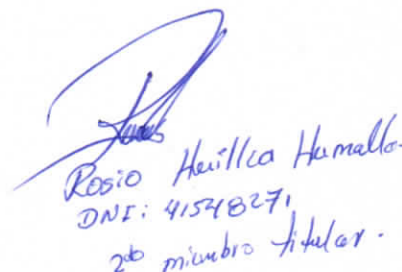 Rosio Huillca Humallo.
DNI: 41548271
2do miembro titular.